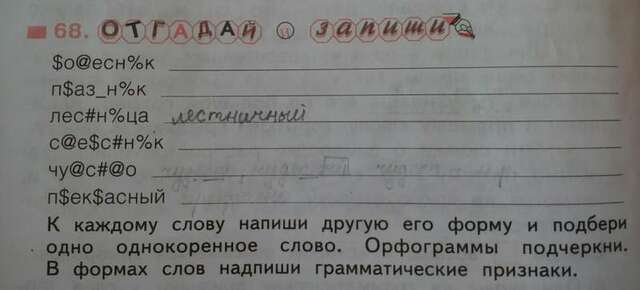 68. ОТГАДАЙ И ЗАПИШИ
$о@есн%к
п$аз_н%к
лес#н%ца лестничный
с@е$с#н%к
чу@с#@о
п$ек$асный
К каждому слову напиши другую его форму и подбери
одно однокоренное слово. Орфограммы подчеркни.
В формах слов надпиши грамматические признаки.